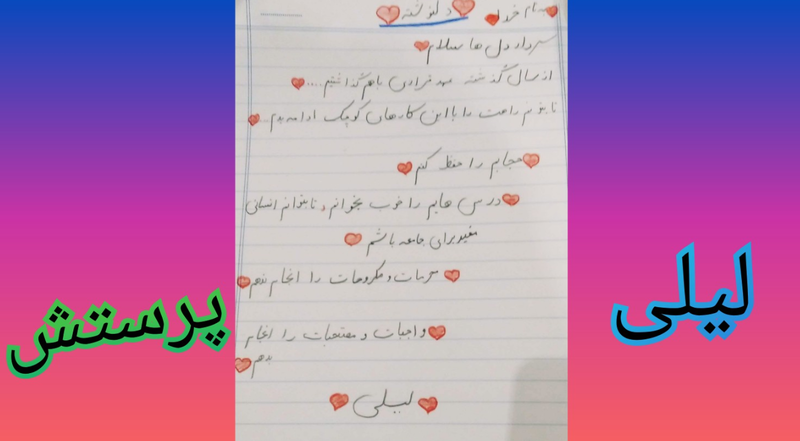 بنام خدا
دلنوشته
سردار دل ها سلام
از سال گذشته عهد قراری باهم گذاشتیم....
تا بتونم راهت را با این کارهای کوچک ادامه بدم...
حجابم را حفظ کنم
درس هایم را خوب بخوانم، تا بتوانم انسانی
مفید برای جامعه باشم
محرمات و مکروهات را انجام ندهم
واجبات و مستحبات را انجام
بدهم
لیلی
لیلی
پرستش